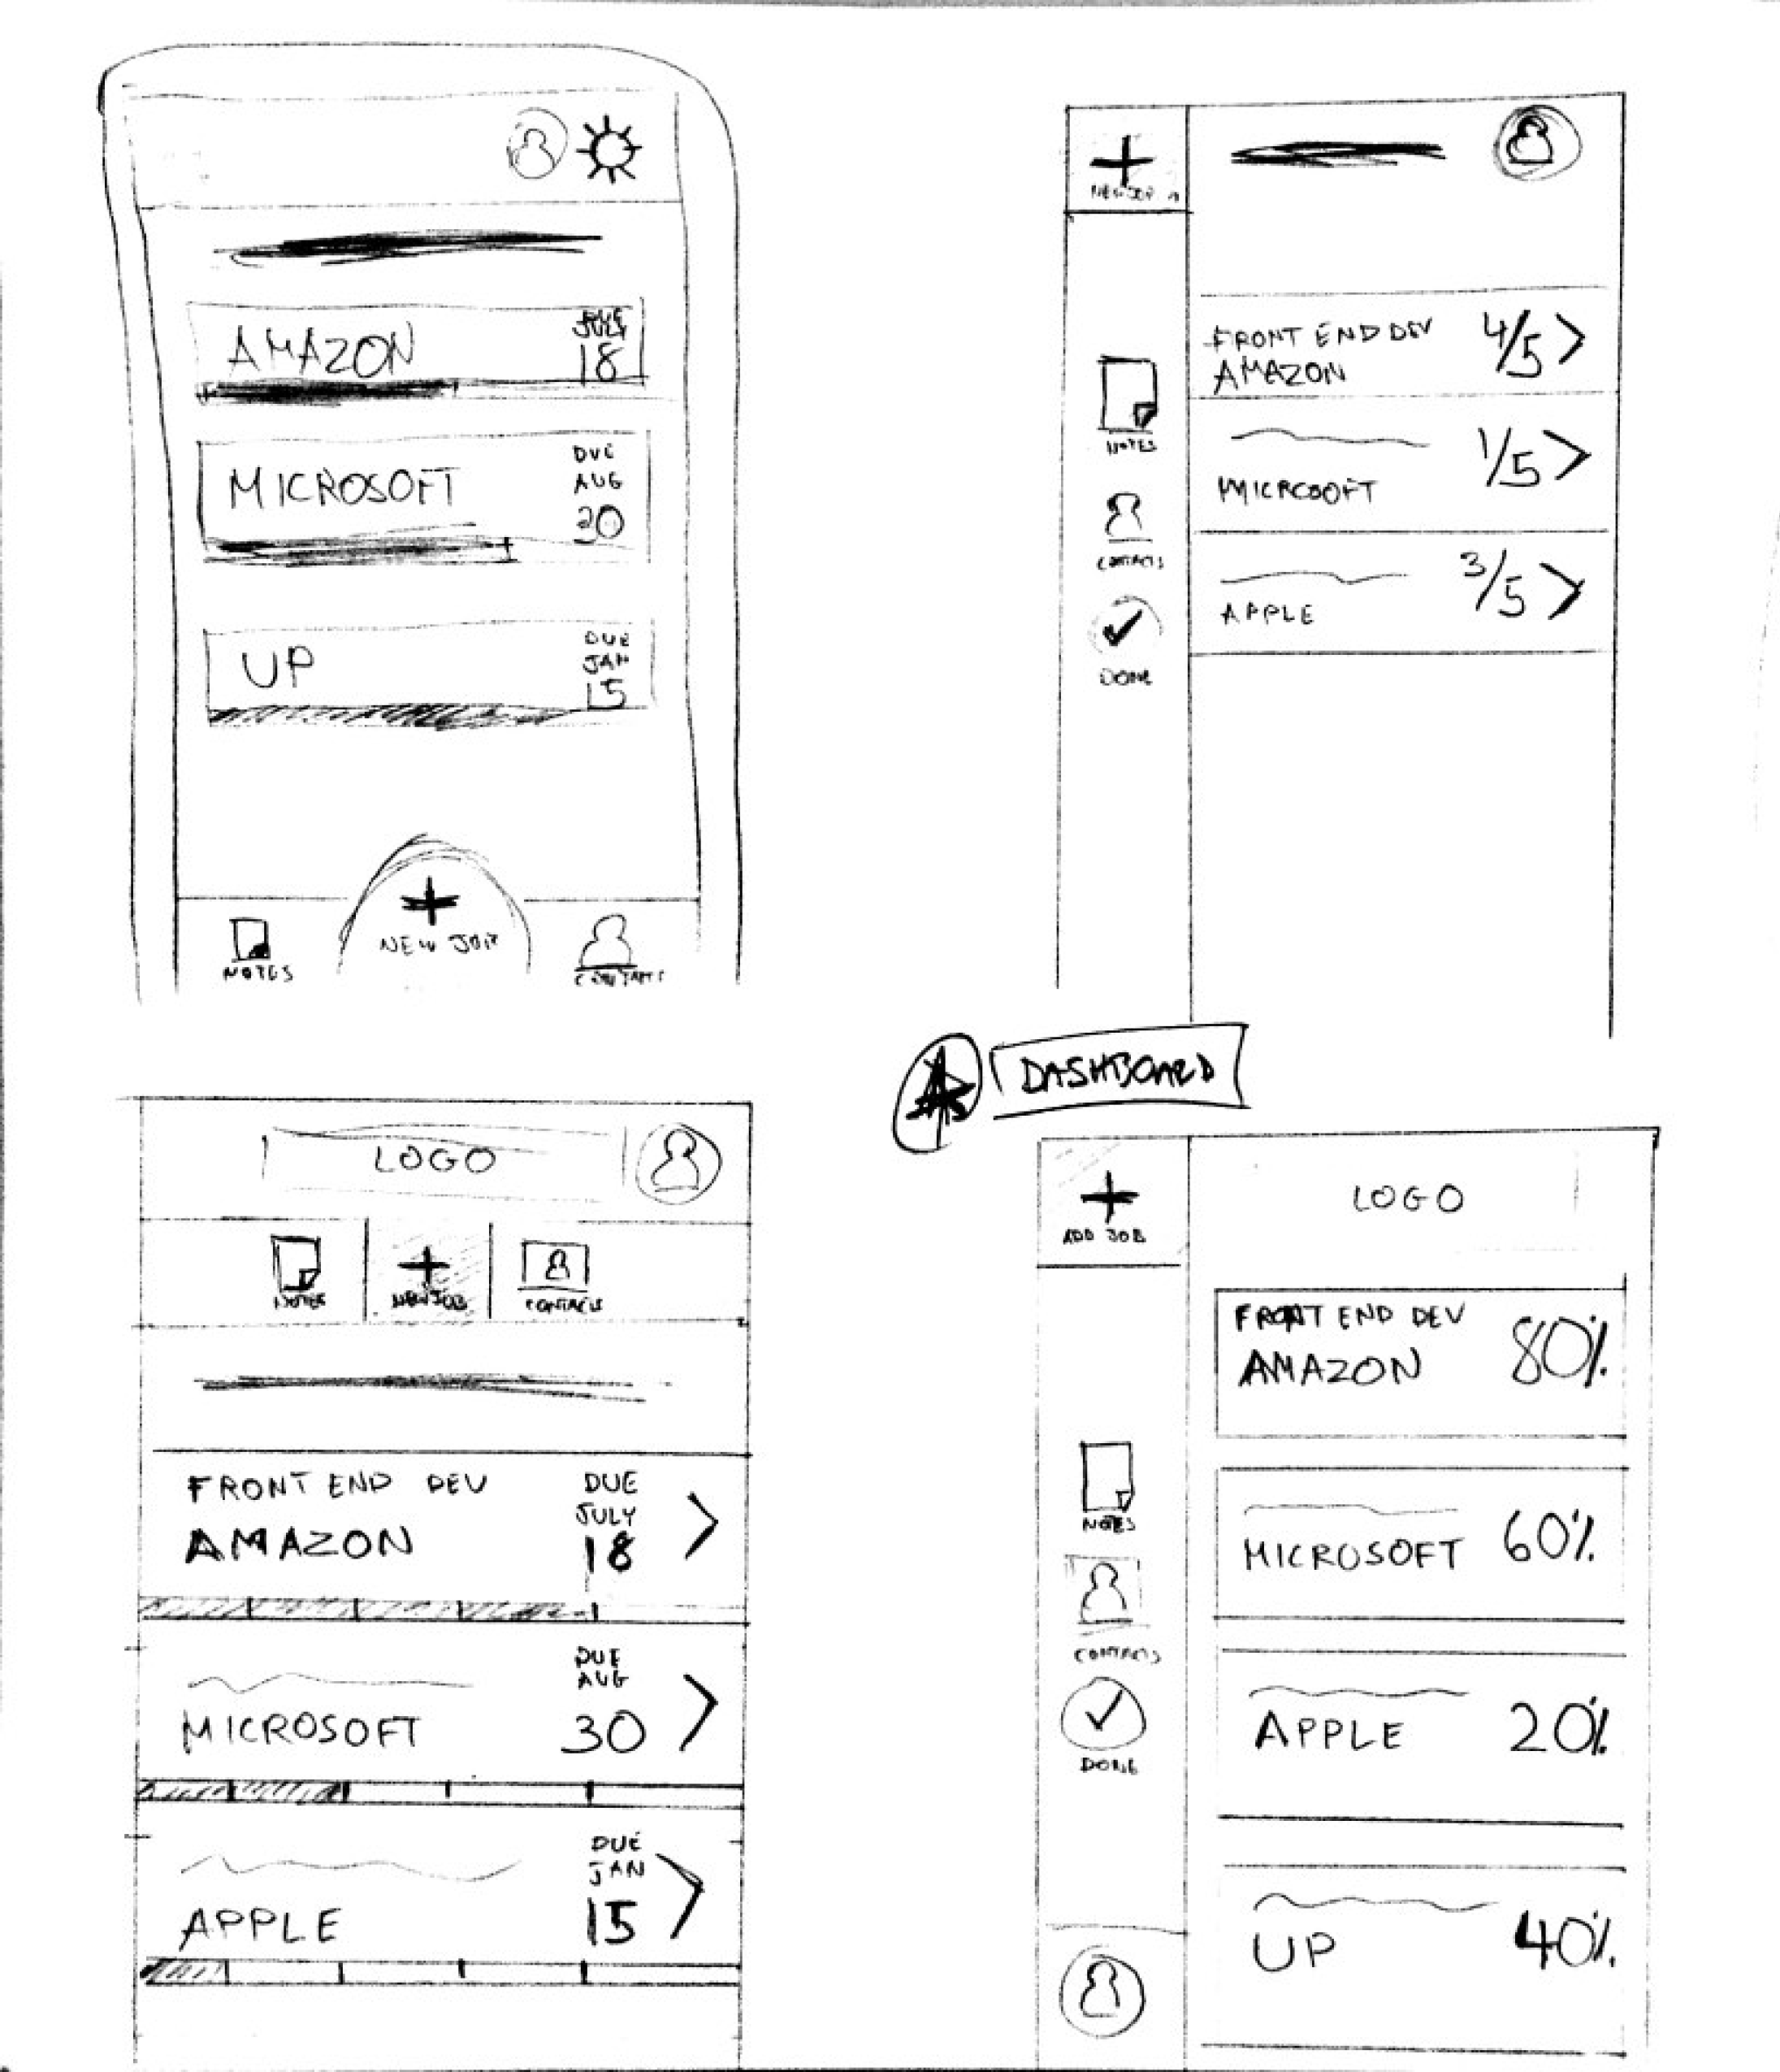 AMAZON
DUE
JULY
18
MICROSOFT
DUE
AUG
30
UP
DUE
JAN
15
NOTES
+
NEW JOB
CONTACTS
+
NEW JOB
NOTES
CONTACTS
DONE
FRONT END DEV
AMAZON
4/5 >
MICROSOFT
1/5 >
APPLE
3/5 >
DASHBOARD
LOGO
NOTES
+
NEW JOB
CONTACTS
FRONT END DEV
AMAZON
DUE
JULY
18
>
MICROSOFT
DUE
AUG
30
>
APPLE
DUE
JAN
15
>
+
ADD JOB
NOTES
CONTACTS
DONE
LOGO
FRONT END DEV
AMAZON
80%
MICROSOFT
60%
APPLE
20%
UP
40%